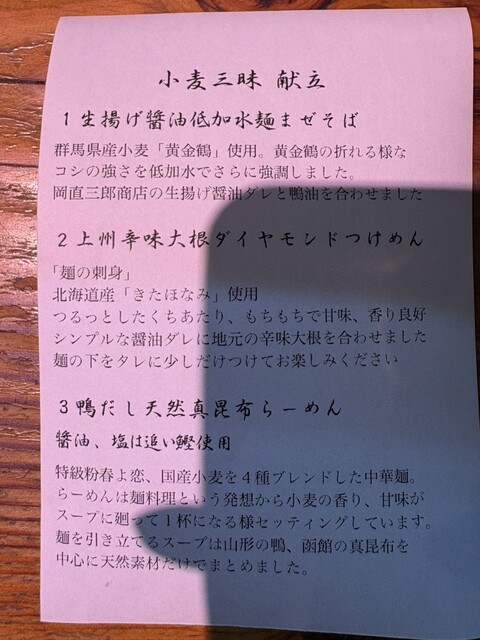 小麦三昧 献立
1 生揚げ醬油低加水麺まぜそば
群馬県産小麦「黄金鶴」使用。黄金鶴の折れる様な
コシの強さを低加水でさらに強調しました。
岡直三郎商店の生揚げ醤油ダレと鴨油を合わせました
2 上州辛味大根ダイヤモンドつけめん
「麺の刺身」
北海道産「きたほなみ」使用
つるっとしたくちあたり、もちもちで甘味、香り良好
シンプルな醤油ダレに地元の辛味大根を合わせました
麺の下をタレに少しだけつけてお楽しみください
3 鴨だし天然真昆布らーめん
醬油、塩は追い鰹使用
特級粉春よ恋、国産小麦を４種ブレンドした中華麺。
らーめんは麺料理という発想から小麦の香り、甘味が
スープに廻って１杯になる様セッティングしています。
麺を引き立てるスープは山形の鴨、函館の真昆布を
中心に天然素材だけでまとめました。